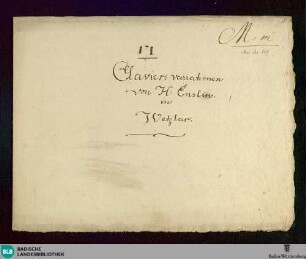 171
Claviers variationen
von H. Enslin.
in
Wetzlar.
BLB BADISCHE
LANDESBIBLIOTHEK
Baden-Württemberg